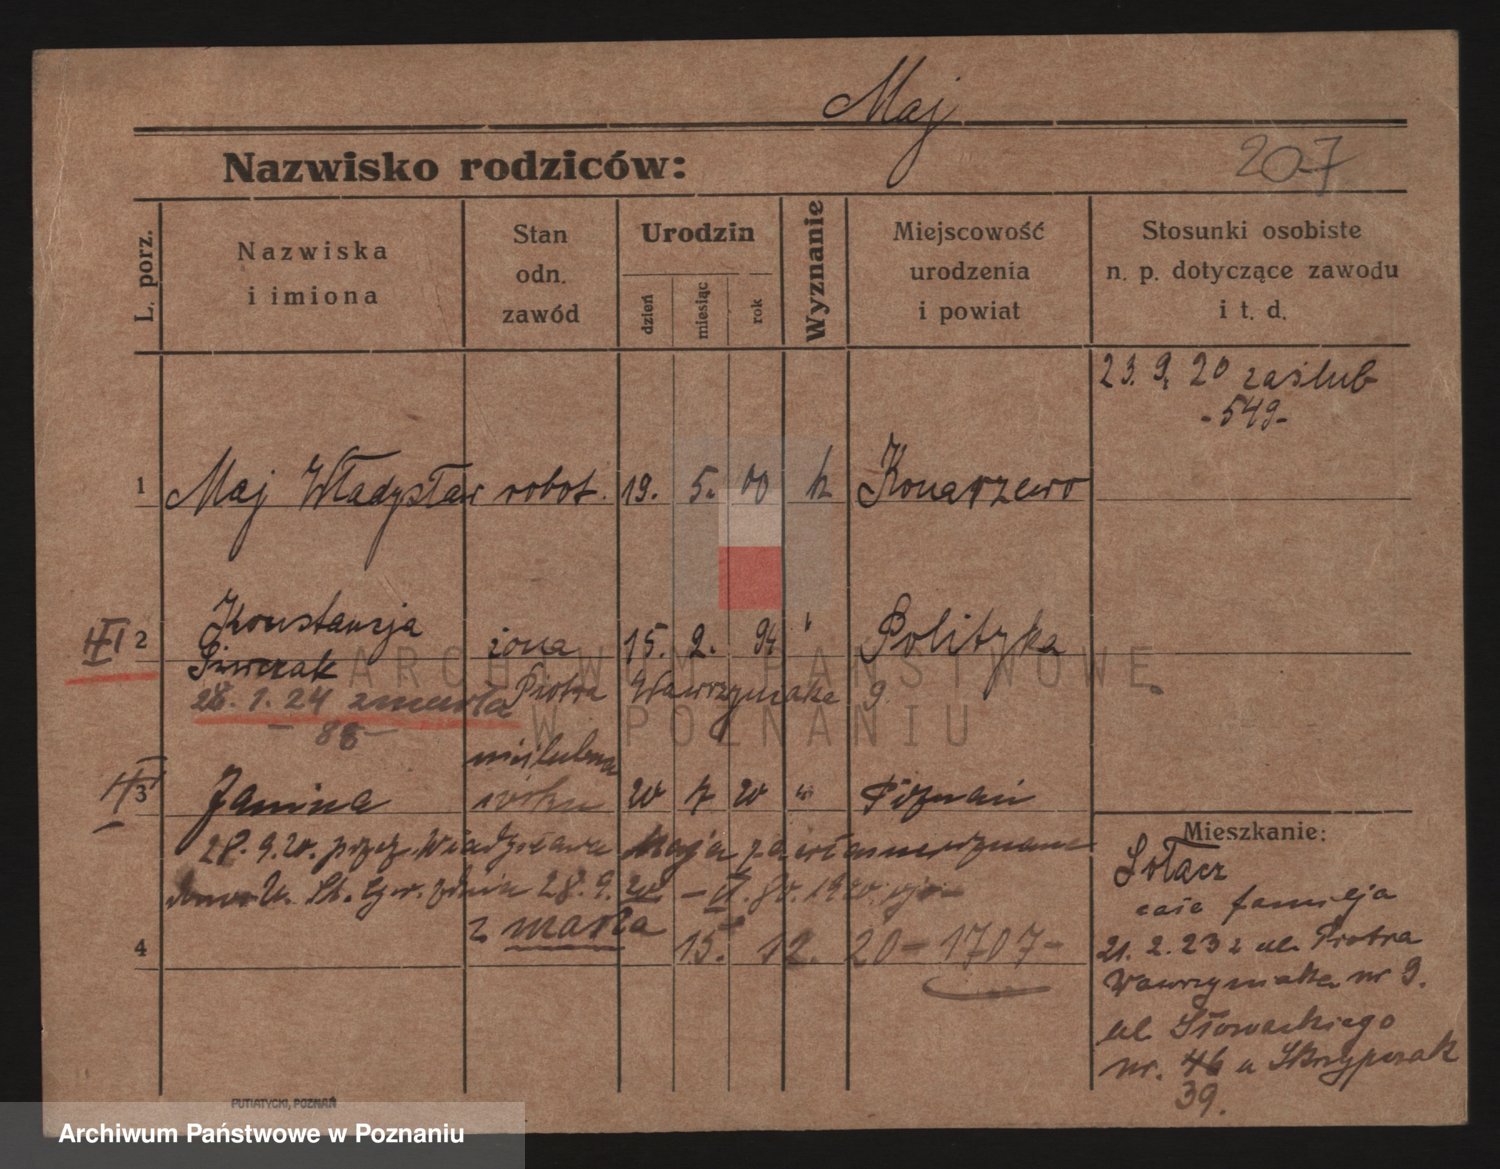 Maj
Nazwisko rodziców:
207
L. porz.
Nazwiska
i imiona
Stan
odn.
zawód
Urodzin
dzień
miesiąc
rok
Wyznanie
Miejscowość
urodzenia
i powiat
Stosunki osobiste
n. p. dotyczące zawodu
i t. d.
23. 9. 20 zaślub
-549-
1 Maj Władysław robot. 19. 5. 00 k Konarzewo
Konstancja
2 żona 15. 2. 94 " Polityka
Piwczak
28. 1. 24 zmarła Piotra Wawrzyniaka 9.
- 88 -
nieślubna
3 Janina córka 20 7 20 " Poznań
28. 9. 20. przez Władysława Maja za
28. 9. 20
z miasta
4 15. 12. 20 - 1707 -
Mieszkanie:
Sołacz
cała familja
21. 2. 23 z ul. Piotra
Wawrzyniaka nr 9.
ul Słowackiego
nr. 46 u Skrzypczak
39.
PUTIATYCKI, POZNAŃ
ARCHIWUM PAŃSTWOWE
W POZNANIU
Archiwum Państwowe w Poznaniu